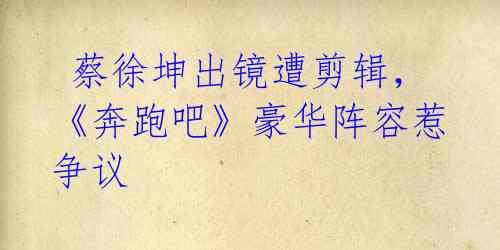 蔡徐坤出镜遭剪辑，
《奔跑吧》豪华阵容惹
争议